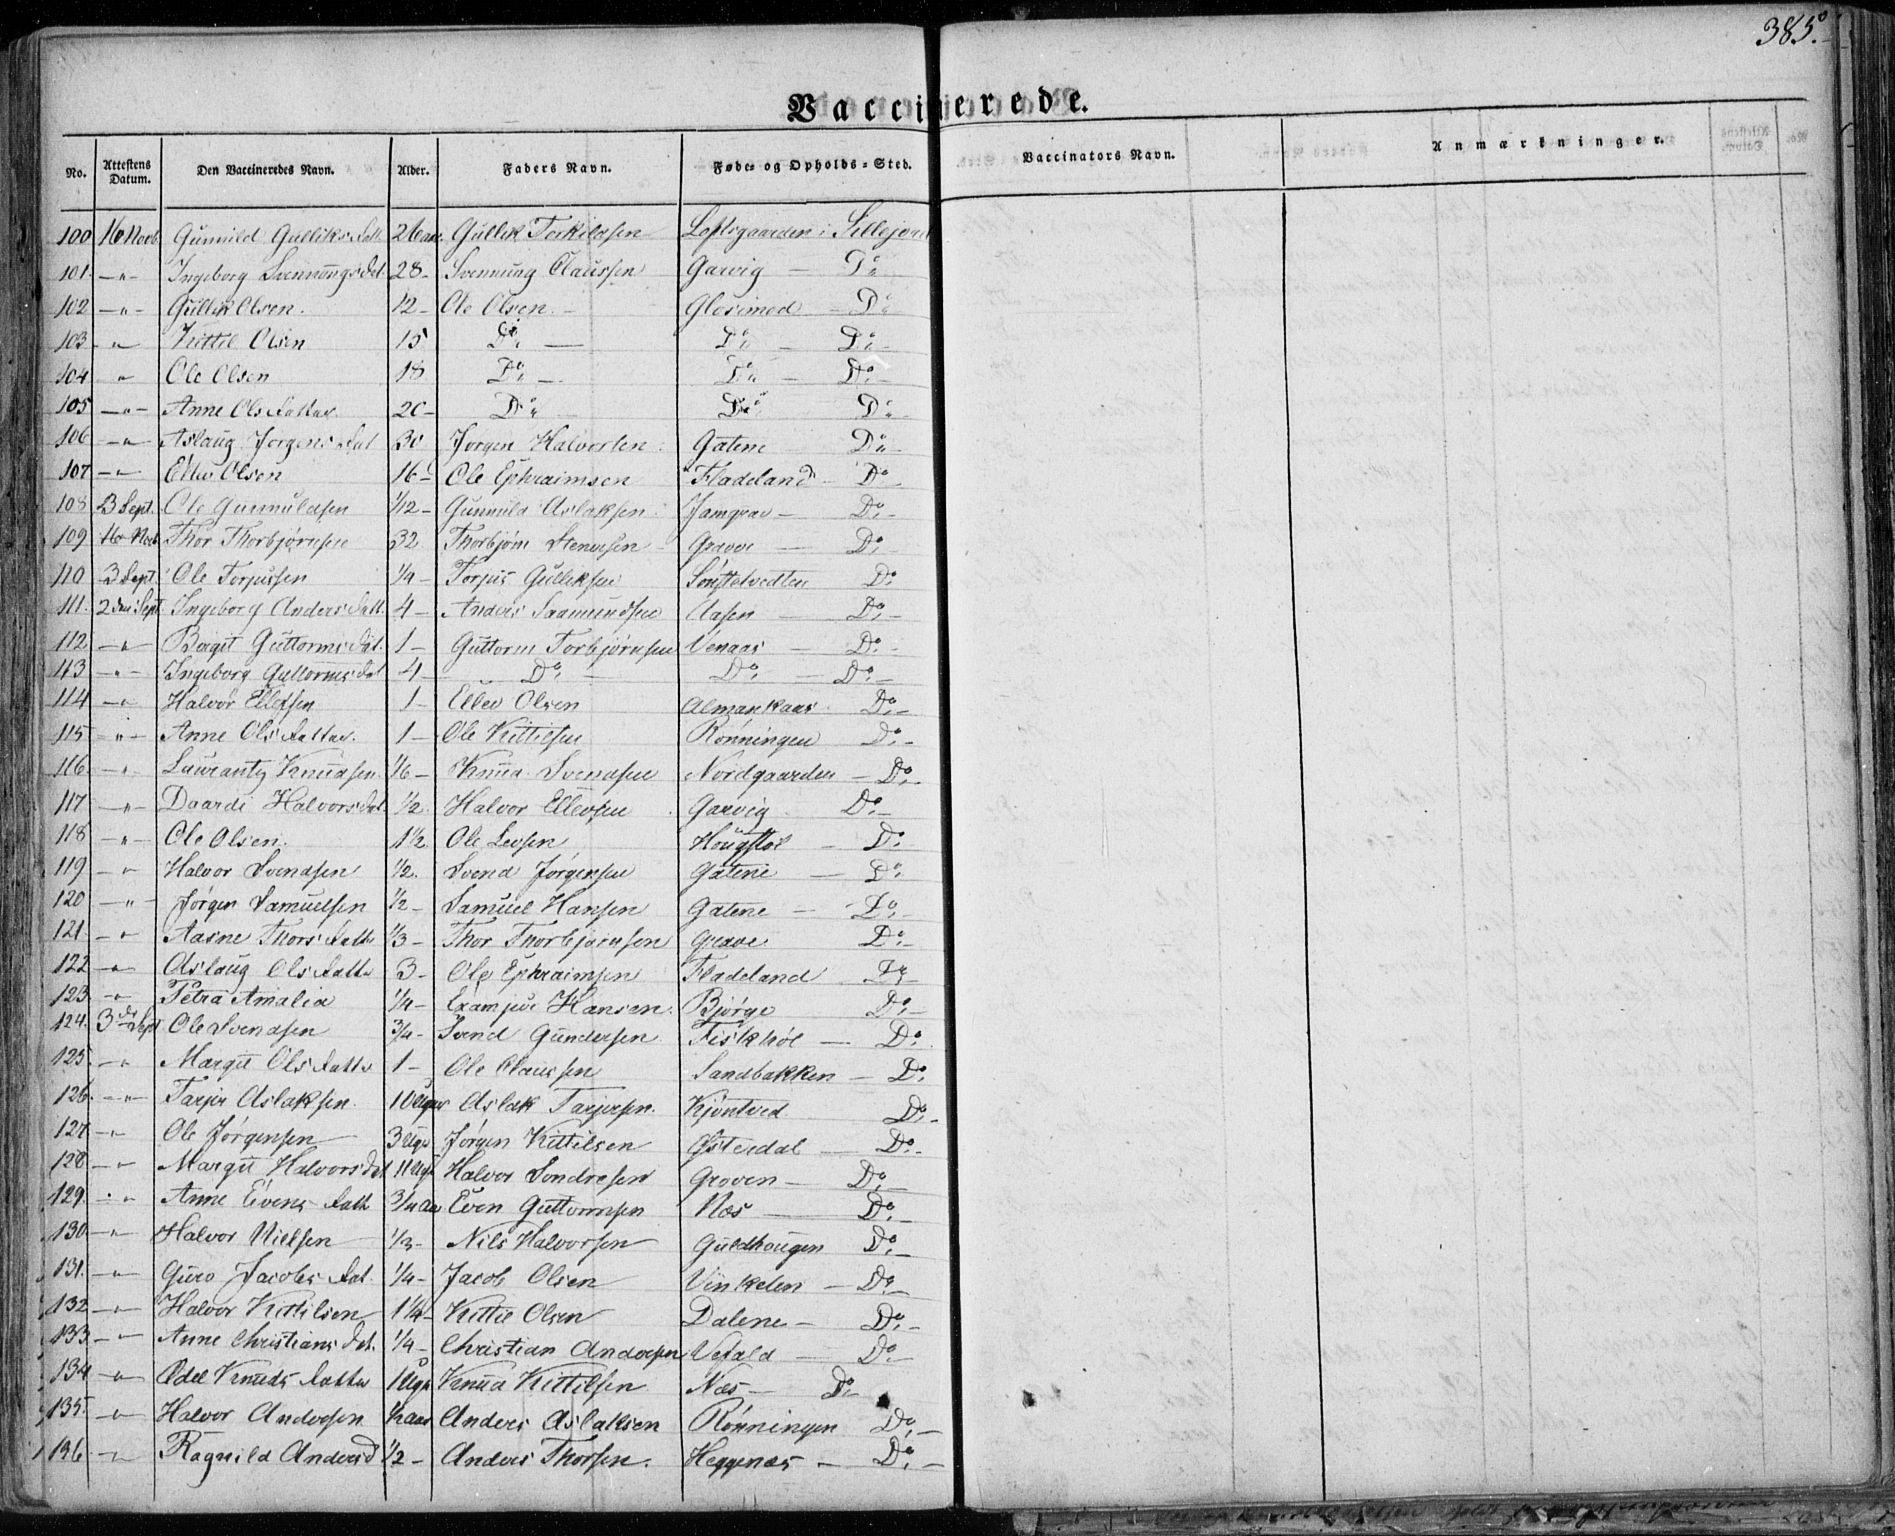 385.
Vaccinerede.
No. Attestens Datum. Den Vaccineredes Navn. Alder. Faders Navn. Føde- og Opholds-Sted. Vaccinators Navn. Anmærkninger.
100 16 Novb. Gunnild Gulliks Datt. 26 aar. Gullik Torkildsen Loftsgaarden i Sillejord
101. —"— Ingeborg Svennungs Dat. 28- Svennung Claussen Garvig — Do
102 —"— Gullik Olsen. 12- Ole Olsen. Glosimod — Do
103 —"— Kittil Olsen 15 Do — Do — Do
104 " Ole Olsen 18 Do — Do — Do
105 —"— Anne Ols Datter. 20- Do Do Do
106 —"— Aslaug Jorgens Dat 30 Jorgen Halvorsen Gatene Do
107 —"— Ellev Olsen 16- Ole Ephraimsen Fladeland Do
108 3 Sept. Ole Gunnuldsen 1/12- Gunnuld Aslaksen Jamgrav — Do
109 16 Novb Thor Thorbjørnsen 32 Thorbjørn Stenersen Grave — Do
110 3 Sept. Ole Torjussen 1/4- Torjus Gulliksen Do
111. 2den Sept. Ingeborg Anders Datt. 4- Anders Saamundsen Aasen — Do
112 —"— Birgit Guttorms Dat. 1- Guttorm Torbjørnsen Venaas — Do
113 —"— Ingeborg Guttorms Dat 4 Do Do — Do
114 —"— Halvor Ellefsen 1- Ellev Olsen Almankaas Do
115 —"— Anne Ols Datter. 1- Ole Kittilsen Rønningen Do
116 —"— Laurantz Knudsen. 1/6- Knud Svendsen Nordgaarden — Do
117 —"— Daardi Halvors Dat 1/2. Halvor Ellevsen Garvig Do
118 —"— Ole Olsen. 1 1/2 Ole Levsen Hougstol — Do
119 —"— Halvor Svendsen 1/2. Svend Jørgensen Gatene — Do
120 —"— Jørgen Samuelsen 1/2- Samuel Hansen Gatene — Do
121. —"— Aasne Thors Datt 1/3- Thor Thorbjørnsen Grave Do
122 —"— Aslaug Ols Datt 3- Ole Ephraimsen Fladeland Do
123. —"— Petra Amalia 1/4- Hansen. Bjørge Do
124. 3de Sept Ole Svendsen 3/4- Svend Gundersen Fiskhøl — Do
125. —"— Margit Ols Datt 1- Ole Claussen Sandbakken — Do
126. —"— Tarjer Aslaksen 10 Uger Aslak Tarjersen. Kjøntved Do
127 —"— Ole Jørgensen 3 Uger Jørgen Kittilsen Østerdal — Do
128 —"— Margit Halvors Dat 11 Uger Halvor Sondresen Groven — Do
129. —"— Anne Evens Datt 3/4 Aar Even Guttormsen Næs — Do
130. —"— Halvor Nielsen 1/3- Nils Halvorsen Guldhougen Do
131. —"— Guro Jacobs Dat. 1/4- Jacob Olsen Vinkelen — Do
132 —"— Halvor Kittilsen 1 1/4- Kittil Olsen Dalene — Do
133 —"— Anne Christians Dat. 1/4- Christian Andersen Vefald — Do
134 —"— Ødel Knuds Datter Uger Knud Kittilsen Næs — Do
135. —"— Halvor Andersen 1/2 aar Anders Aslaksen Rønningen Do
136 —"— Ragnild Andersd 1/2- Anders Thorsen. Heggenæs — Do